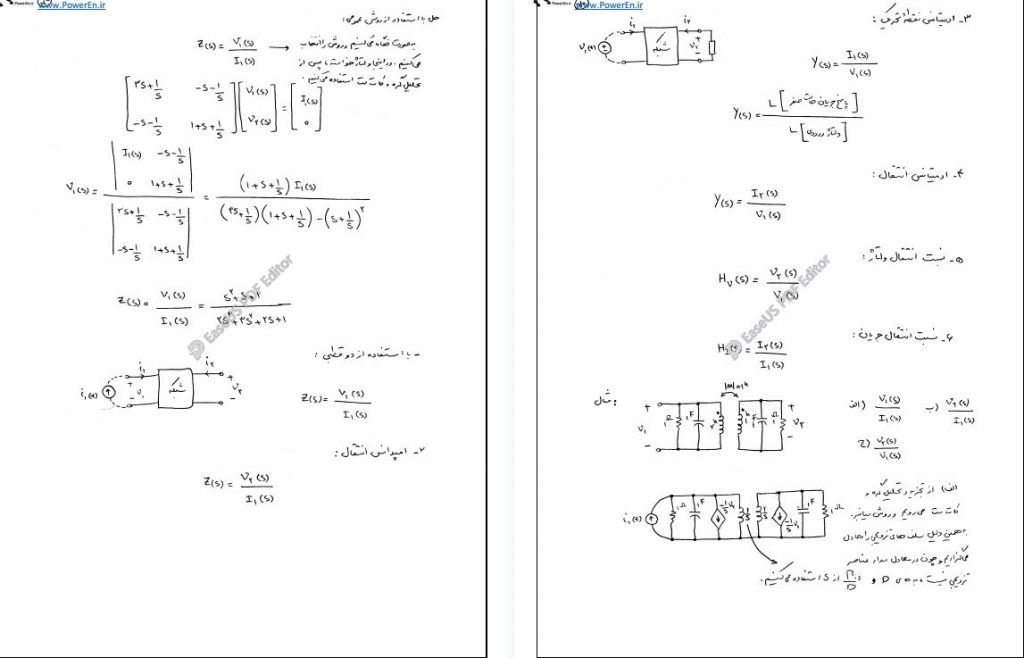 www.PowerEn.ir
حل با استفاده از روش عمومی:
Z(s) = V₁(s) / I₁(s) →
به صورت نگاه می‌کنیم و روش را انتخاب
می‌کنیم. در اینجا ولتاژ خواسته، پس از
تحلیل گره و کات ست استفاده می‌کنیم.
[ ۳s+1/s   -s-1/s ; -s-1/s   1+s+1/s ] [ V₁(s) ; V₂(s) ] = [ I₁(s) ; 0 ]
V₁(s) = | I₁(s)   -s-1/s ; 0   1+s+1/s | / | ۳s+1/s   -s-1/s ; -s-1/s   1+s+1/s | = (1+s+1/s) I₁(s) / (۳s+1/s)(1+s+1/s) - (s+1/s)²
Z(s) = V₁(s) / I₁(s)
EaseUS PDF Editor
- با استفاده از دو قطبی:
i₁(s) i₁ + V₁ - شبکه i₂ + V₂ -
Z(s) = V₁(s) / I₁(s)
۲- امپدانس انتقال:
Z(s) = V₂(s) / I₁(s)
www.PowerEn.ir
۳- ادمیتانس نقطهٔ تحریک:
V₁(s) i₁ شبکه i₂ + V₂ -
Y(s) = I₁(s) / V₁(s)
Y(s) = L[پاسخ جریان حالت صفر] / L[ولتاژ ورودی]
۴- ادمیتانس انتقال:
Y(s) = I₂(s) / V₁(s)
۵- نسبت انتقال ولتاژ:
Hᵥ(s) = V₂(s) / V₁(s)
EaseUS PDF Editor
۶- نسبت انتقال جریان:
H_I(s) = I₂(s) / I₁(s)
مثال:
+ V₁ - 1Ω 1F 1F 1Ω + V₂ -
الف) V₁(s) / I₁(s)   ب) V₂(s) / I₁(s)
ج) V₂(s) / V₁(s)
الف) از تجزیه و تحلیل گره و
کات ست می‌رویم و روش میانبر.
i₁(s) 1Ω 1F 1F 1Ω
به همین دلیل سلف‌های تزویجی را معادل
می‌گذاریم و چون در معادل مدار عناصر
تزویجی نیست، به جای D و 1/D از s استفاده می‌کنیم.